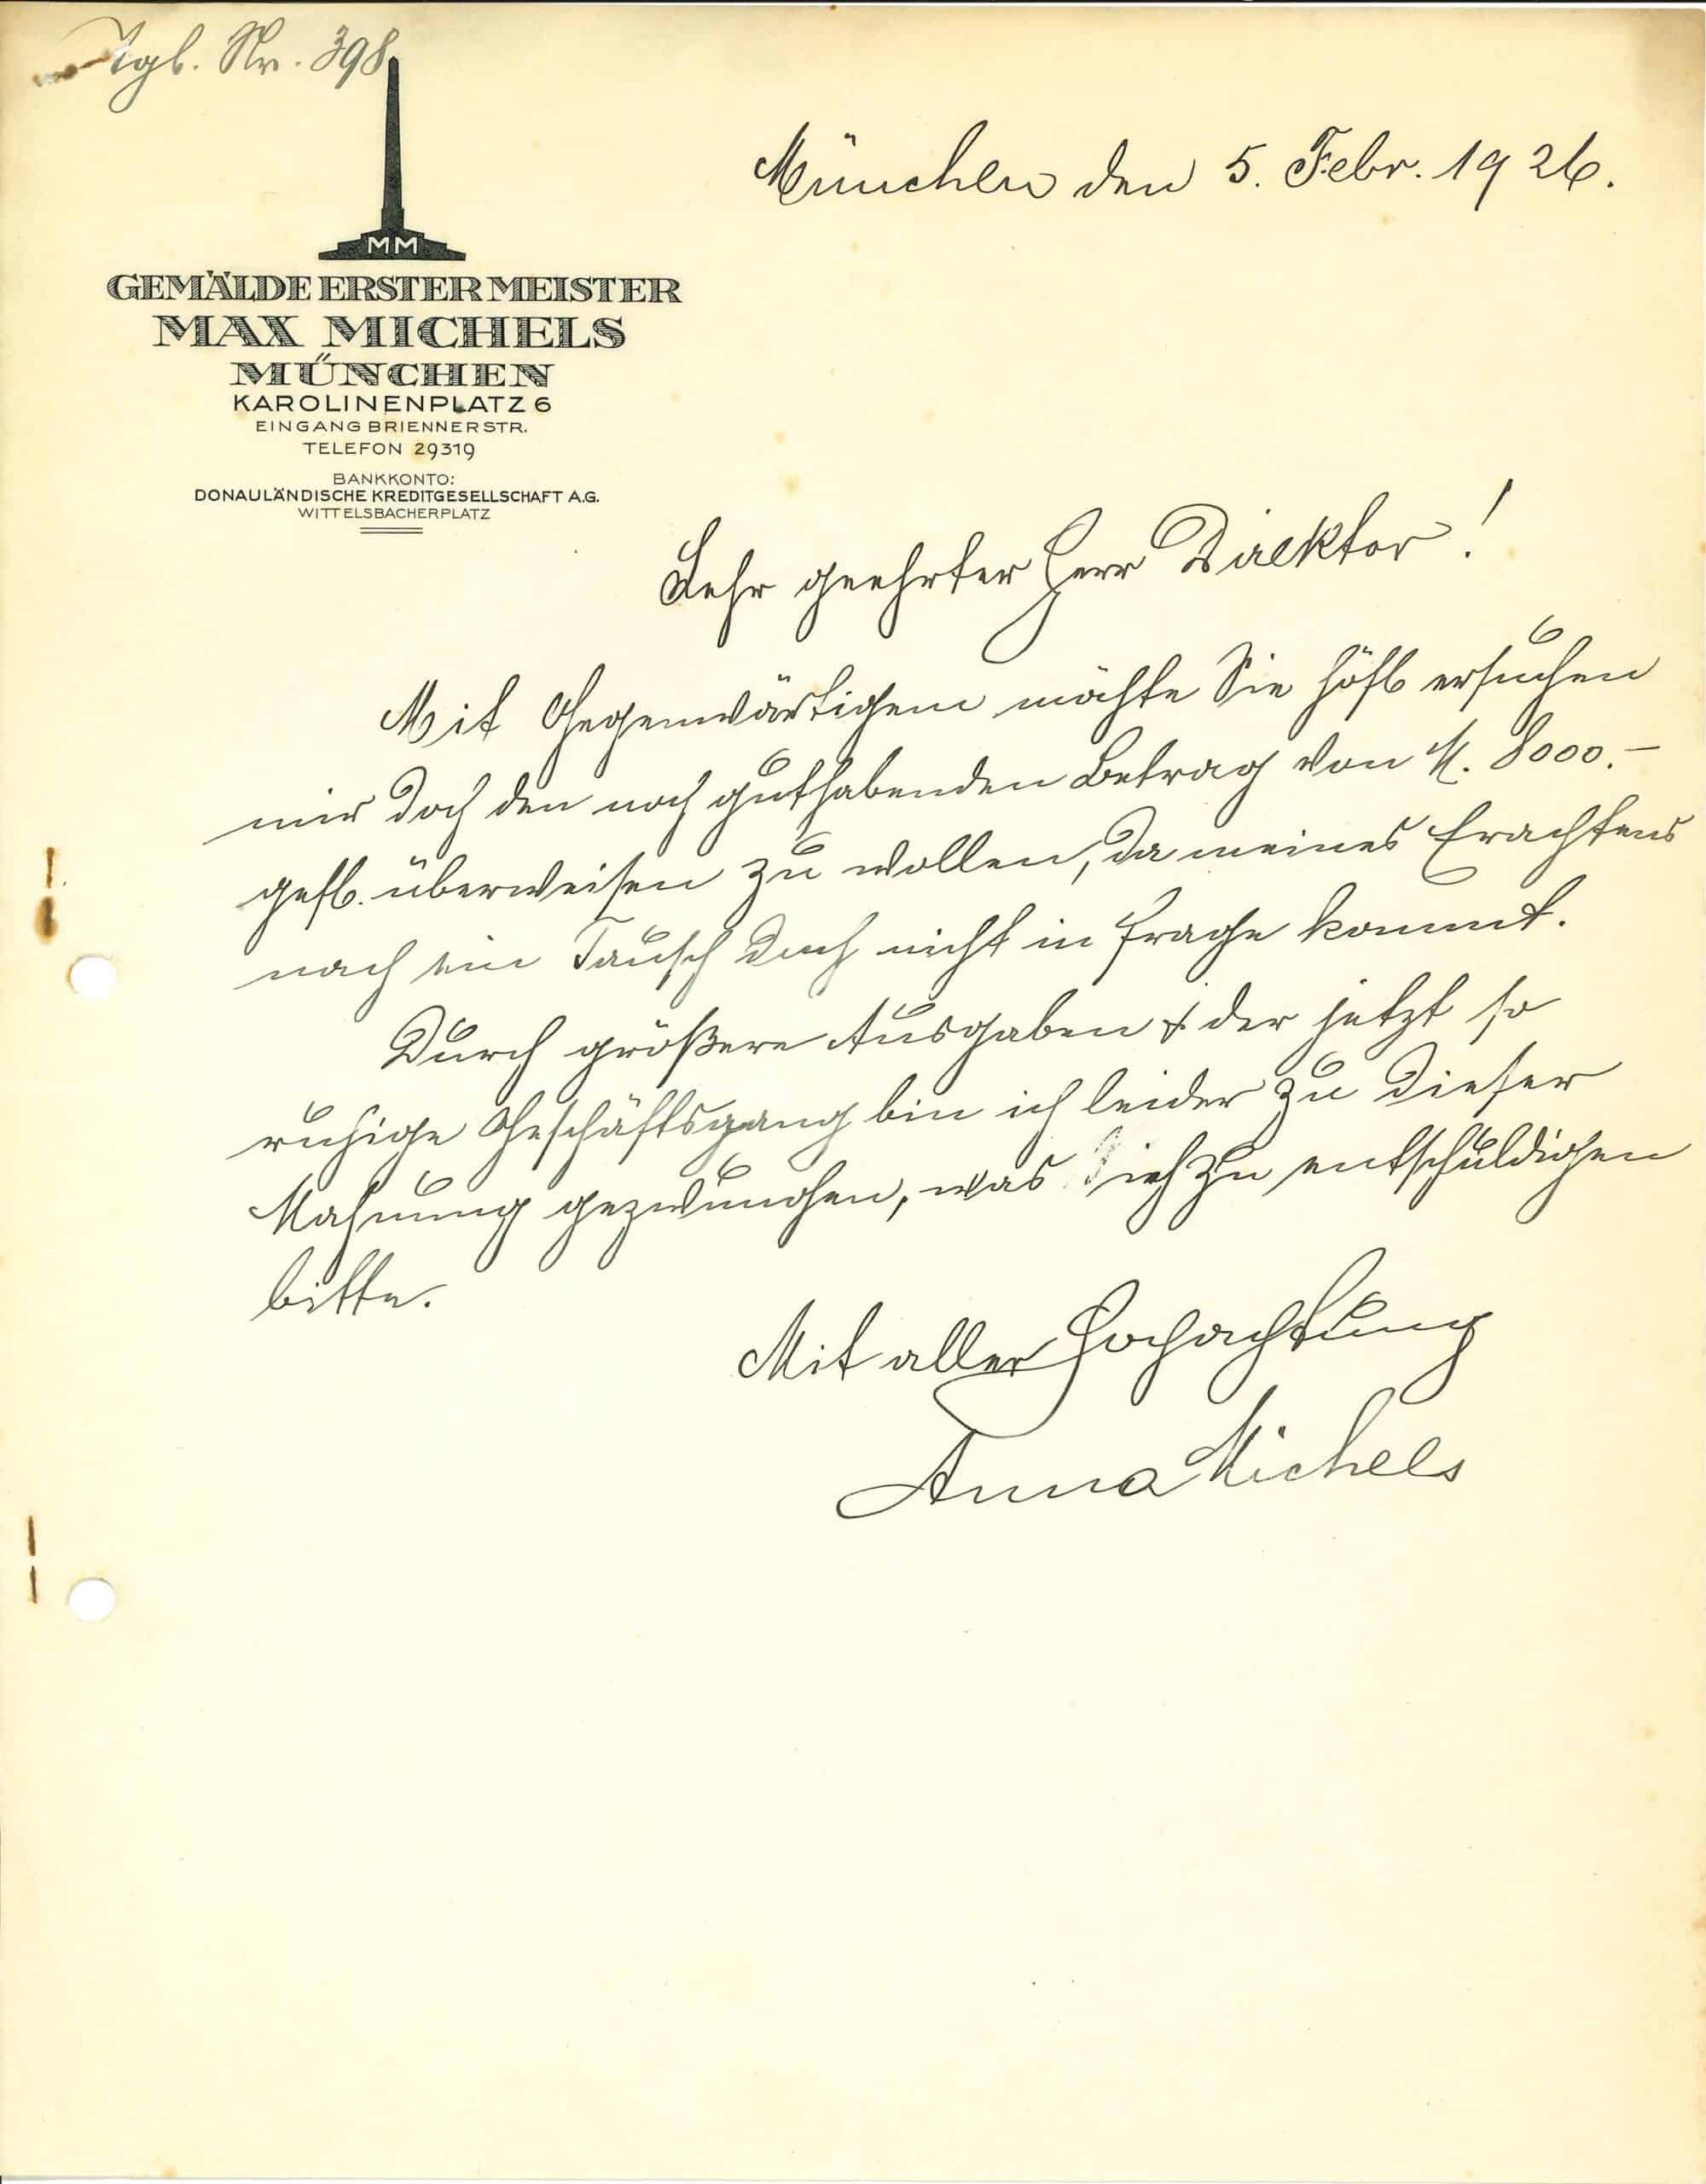 Tgb. Nr. 398
MM
GEMÄLDE ERSTER MEISTER
MAX MICHELS
MÜNCHEN
KAROLINENPLATZ 6
EINGANG BRIENNERSTR.
TELEFON 29319
BANKKONTO:
DONAULÄNDISCHE KREDITGESELLSCHAFT A.G.
WITTELSBACHERPLATZ
München den 5. Febr. 1926.
Sehr geehrter Herr Direktor!
Mit Gegenwärtigem möchte Sie höfl ersuchen
mir doch den noch guthabenden Betrag von M. 8000.-
gefl. überweisen zu wollen, da meines Erachtens
nach ein Tausch doch nicht in Frage kommt.
Durch größere Ausgaben & der jetzt so
ruhige Geschäftsgang bin ich leider zu dieser
Mahnung gezwungen, was ich zu entschuldigen
bitte.
Mit aller Hochachtung
Anna Michels